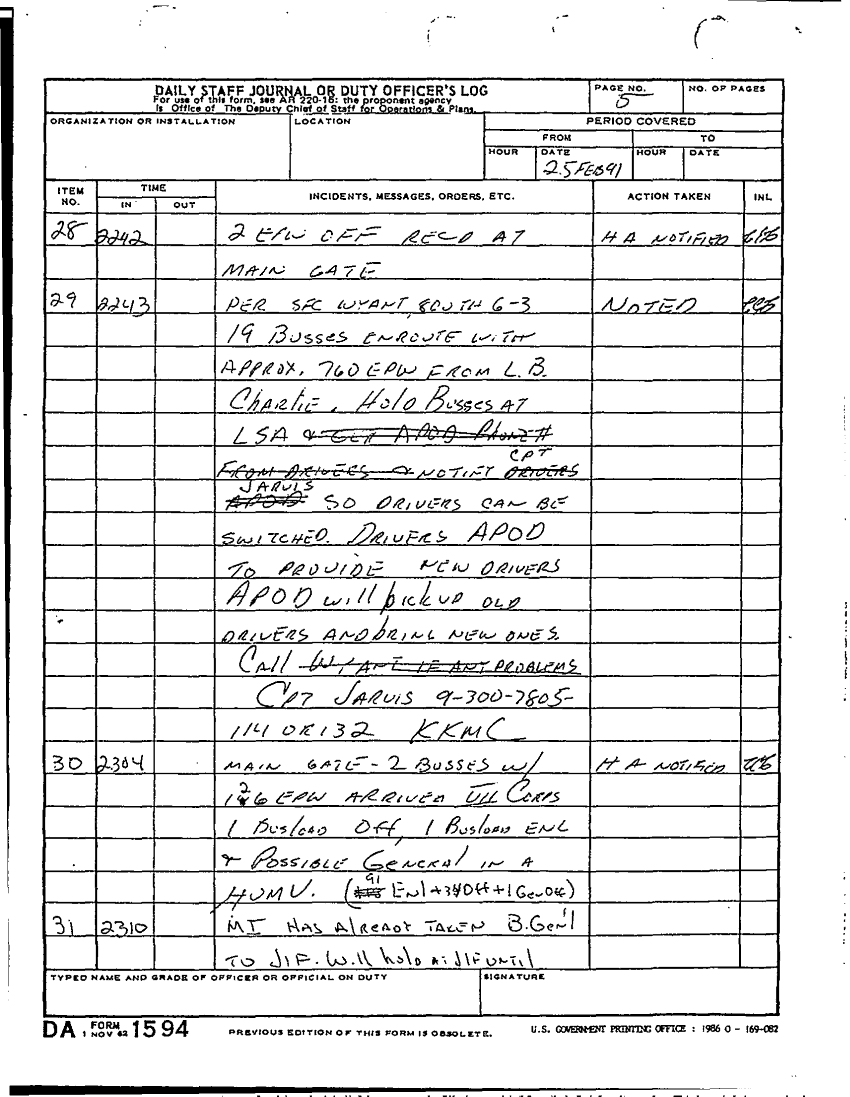 DAILY STAFF JOURNAL OR DUTY OFFICER'S LOG
For use of this form, see AR 220-15; the proponent agency
is Office of The Deputy Chief of Staff for Operations & Plans.
PAGE NO.
5
NO. OF PAGES
ORGANIZATION OR INSTALLATION
LOCATION
PERIOD COVERED
FROM
TO
HOUR
DATE
25FEB91
HOUR
DATE
ITEM NO.
TIME
IN
OUT
INCIDENTS, MESSAGES, ORDERS, ETC.
ACTION TAKEN
INL
28 2242 2 EPW OFF RECD AT HA NOTIFIED
MAIN GATE
29 2243 PER SFC WYANT, 800TH G-3 NOTED
19 Busses ENROUTE WITH
APPROX. 760 EPW FROM L.B.
CHARLIE. Hold Busses AT
LSA & GET APOD Phone #
CPT
FROM DRIVERS & NOTIFY DRIVERS
JARVIS
APOD SO DRIVERS CAN BE
SWITCHED. DRIVERS APOD
TO PROVIDE NEW DRIVERS
APOD will pick up OLD
DRIVERS AND bring NEW ONES.
Call WYANT IF ANY PROBLEMS
CPT JARVIS 9-300-7805-
114 OR 132 KKMC
30 2304 MAIN GATE - 2 BUSSES W/ HA NOTIFIED
126 EPW ARRIVED VII Corps
1 Busload Off, 1 Busload ENL
& Possible General IN A
HUMV. (91 Enl + 34 Off + 1 Gen Off)
31 2310 MI HAS Already TAKEN B.Gen'l
TO JIF. Will hold at JIF UNTIL
TYPED NAME AND GRADE OF OFFICER OR OFFICIAL ON DUTY
SIGNATURE
DA FORM 1 NOV 62 1594
PREVIOUS EDITION OF THIS FORM IS OBSOLETE.
U.S. GOVERNMENT PRINTING OFFICE : 1986 O - 169-082